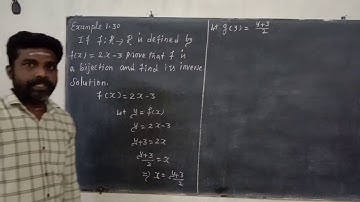 Example 1.30
If f: R → R is defined by
f(x) = 2x-3 prove that f is
a bijection and find its inverse
Solution.
f(x) = 2x-3
Let y = f(x)
y = 2x-3
y+3 = 2x
y+3/2 = x
⇒ x = y+3/2
Let g(y) = y+3/2